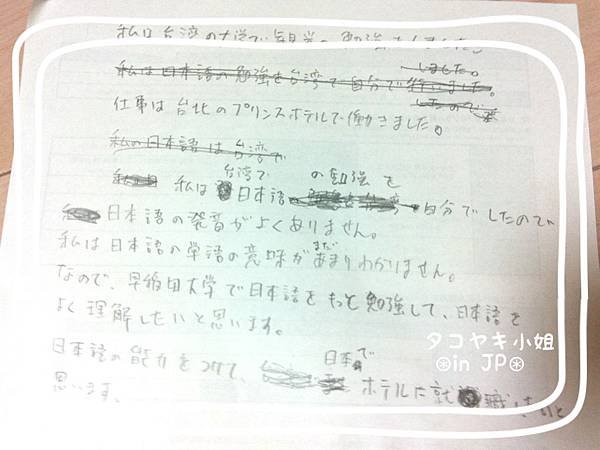 私は台湾の大学で観光の勉強をしました。
しました。
私は日本語の勉強を台湾で自分で行いました。
したので
仕事は台北のプリンスホテルで働きました。
私の日本語は台湾で
台湾で の勉強を
私は日本語 自分でしたので
日本語の発音がよくありません。
まだ
私は日本語の単語の意味があまりわかりません。
なので、早稲田大学で日本語をもっと勉強して、日本語を
よく理解したいと思います。
日本語の能力をつけて、 日本で ホテルに就職したいと
思います。
タコヤキ小姐
in JP